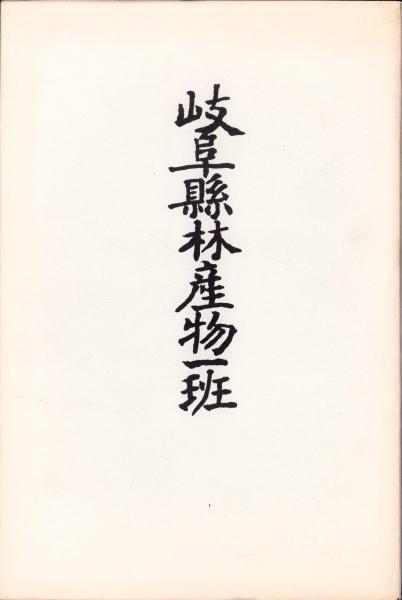 岐阜縣林産物一班